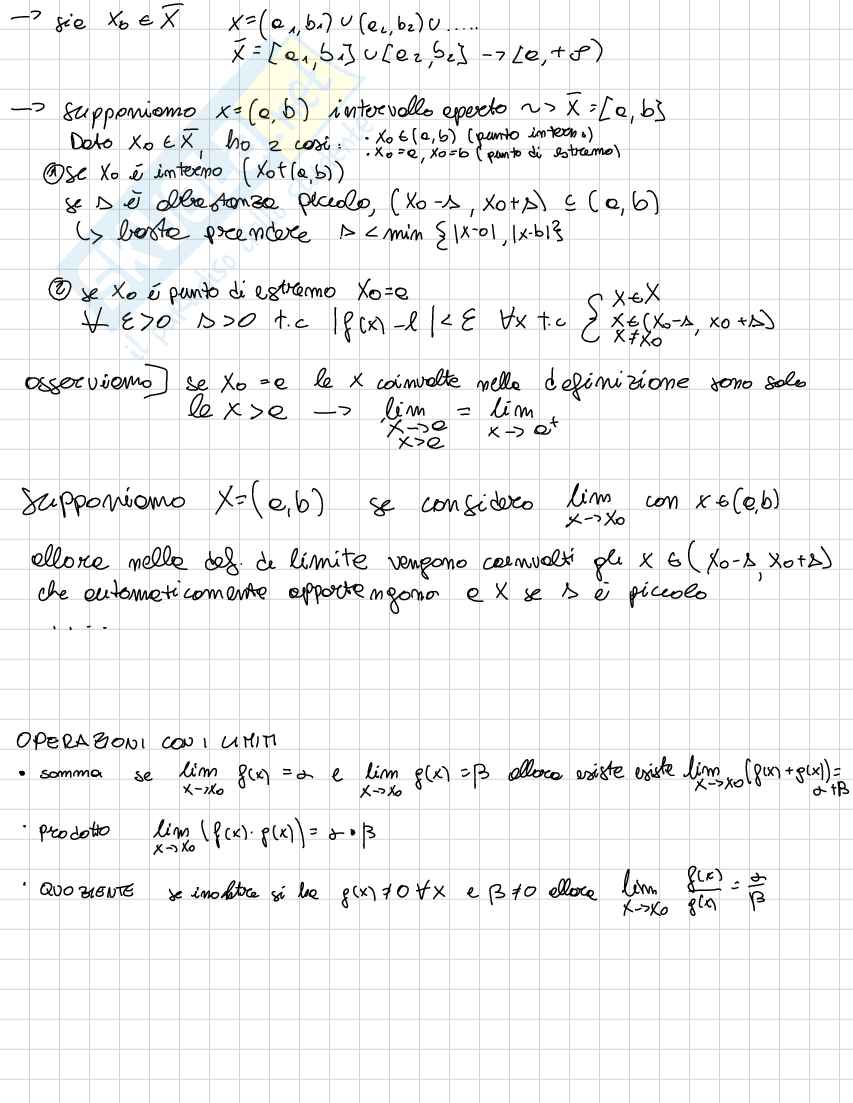 → sia x₀ ∈ X̄ X = (a₁, b₁) ∪ (a₂, b₂) ∪ .....
X̄ = [a₁, b₁] ∪ [a₂, b₂] → [a, +∞)
→ supponiamo X = (a, b) intervallo aperto ~> X̄ = [a, b]
Dato x₀ ∈ X̄, ho 2 casi: · x₀ ∈ (a, b) (punto interno)
· x₀ = a, x₀ = b (punto di estremo)
① se x₀ è interno (x₀ ∈ (a, b))
se δ è abbastanza piccolo, (x₀-δ, x₀+δ) ⊆ (a, b)
↳ basta prendere δ < min {|x-a|, |x-b|}
② se x₀ è punto di estremo x₀ = a
∀ ε>0 δ>0 t.c |f(x) - l| < ε ∀x t.c { x ∈ X
x ∈ (x₀-δ, x₀+δ)
x ≠ x₀
osserviamo] se x₀ = a le x coinvolte nella definizione sono solo
le x > a → lim = lim
x→a x→a⁺
x>a
Supponiamo X = (a, b) se considero lim con x ∈ (a, b)
x→x₀
allora nella def. di limite vengono coinvolti gli x ∈ (x₀-δ, x₀+δ)
che automaticamente appartengono a X se δ è piccolo
.....
OPERAZIONI CON I LIMITI
• somma se lim f(x) = α e lim g(x) = β allora esiste esiste lim (f(x) + g(x)) =
x→x₀ x→x₀ x→x₀ α+β
· prodotto lim (f(x) · g(x)) = α · β
x→x₀
· QUOZIENTE se inoltre si ha g(x) ≠ 0 ∀x e β ≠ 0 allora lim f(x)/g(x) = α/β
x→x₀